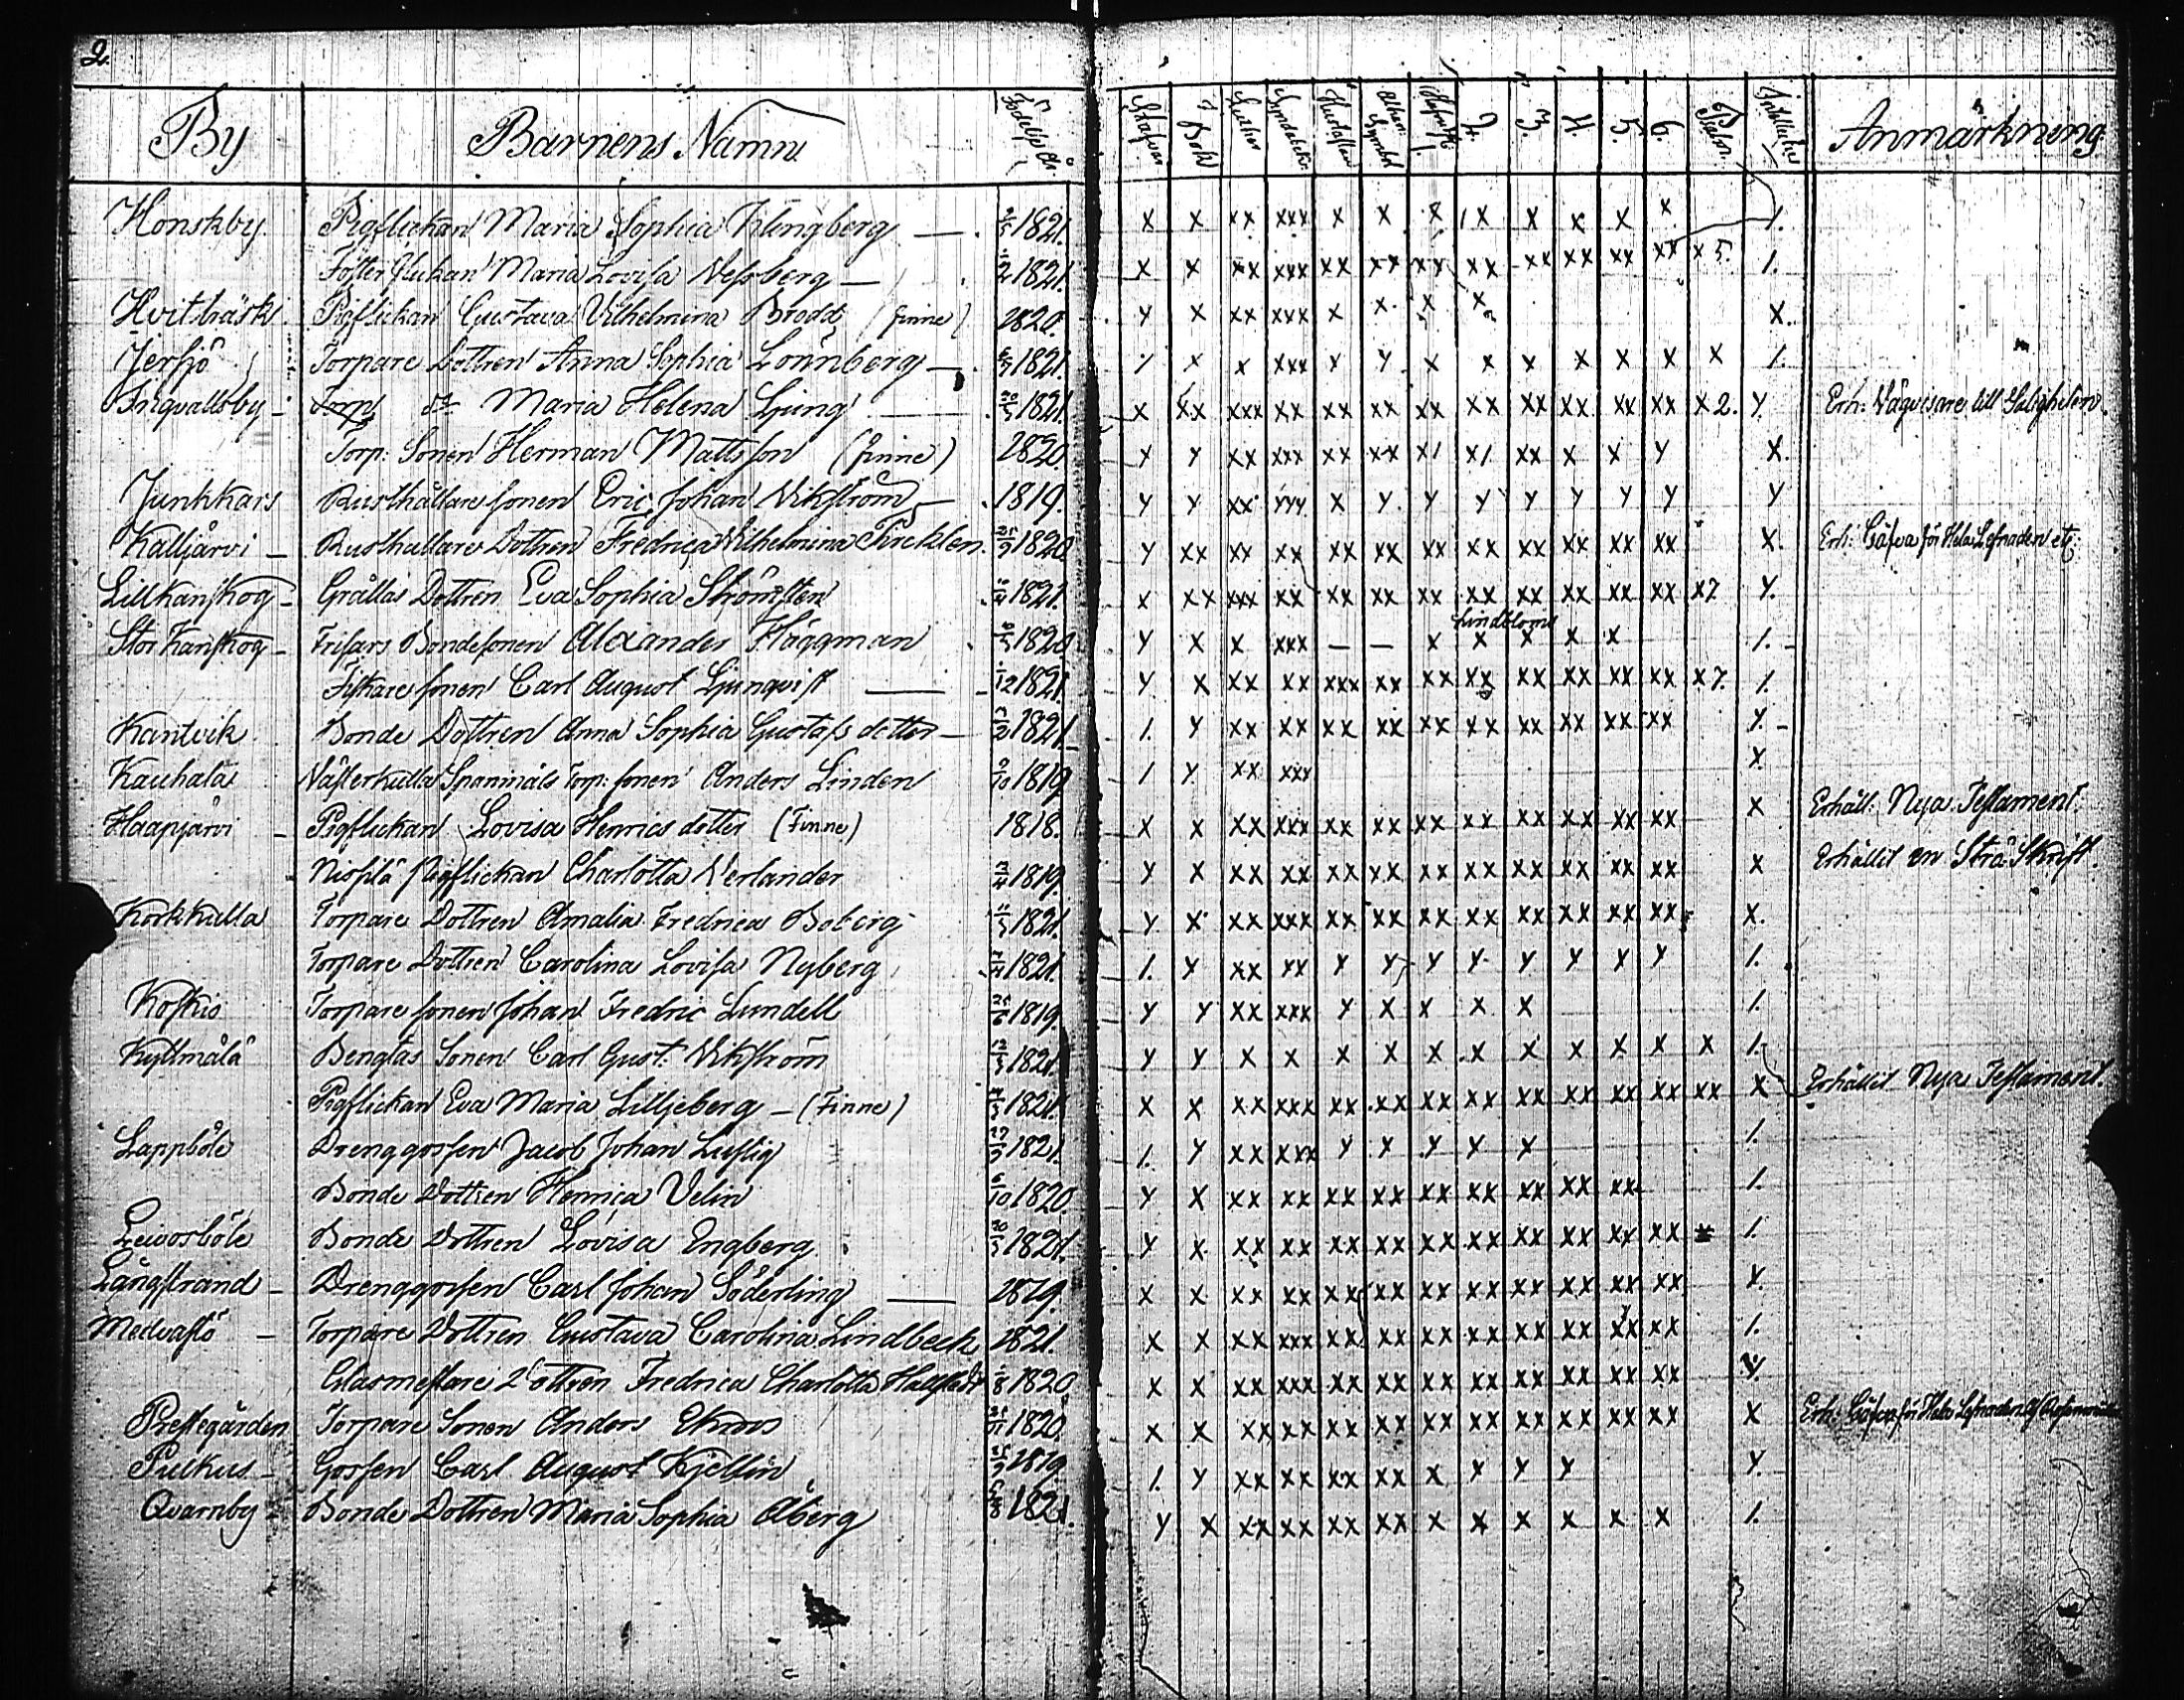 2.
By Barnens Namn Födelse år Stafvar i Bok Luther Hustaflan Athan: Symbol 2. 3. 4. 5. 6. Anmärkning
Honskby Pigflickan Maria Sophia Klingberg — 1821. x x xx xxx x x x x x x x x 1.
Foster flickan Maria Lovisa — 1821. x x xx xxx xx xx xx xx xx xx xx xx x 5. 1.
Hvitträsk Pigflickan Gustava Vilhelmina Brodd (finne) 1820. y x xx xxx x x x x x.
Jerfsö Torpare Dottren Anna Sophia Lönnberg — 1821. 1 x x xxx y y x x x x x x x 1.
Ingvallsby — Torp dr Maria Helena Ljung — 20/3 1821. x xx xxx xx xx xx xx xx xx xx xx xx x 2. y. Erh: Vägvisare till Saligheten.
Torp: Sonen Herman Mattsson (finne) 1820. y y xx xxx xx xx x1 x1 xx x x y x.
Junkkars Rusthållare sonen Eric Johan Vikström — 1819. y y xx yyy x y y y y y y y y
Kalljärvi — Rusthållare Dottren Fredrica Vilhelmina 1820 y xx xx xx xx xx xx xx xx xx xx xx x. Erh: för Hela Lefnaden etc:
Lillkanskog — Grållas Dottren Eva Sophia Strömsten 1821. x xx xxx xx xx xx xx xx xx xx xx xx x7 y.
Lindbloms
Stor Kanskog — Frisars Bondesonen Alexander Häggman 1820 y x x xxx — — x x x x x 1.
Fiskare sonen Carl August Ljunqvist — 1/12 1821. y x xx xx xxx xx xx xx xx xx xx xx x7. 1.
Kantvik Bonde Dottren Anna Sophia Gustafs dotter — 1821 1. y xx xx xx xx xx xx xx xx xx xx y.
Kauhala Spanmäls Torp: sonen Anders Linden 9/10 1819 1 y xx xxx x.
Haapjärvi — Pigflickan Lovisa Henrics dotter (Finne) 1818. x x xx xxx xx xx xx xx xx xx xx xx x Erhåll: Nya Testament.
Pigflickan Charlotta Verlander 1819. y x xx xx xx xx xx xx xx xx xx xx x Erhållit en Skrift.
Korkkulla Torpare Dottren Amalia Fredrica Boberg 1821. y x xx xxx xx xx xx xx xx xx xx xx x.
Torpare Dottren Carolina Lovisa Nyberg 1821. 1. y xx yy y y y y y y y y 1.
Koskis Torpare sonen Johan Fredric Lundell 1819. y y xx xxx y x x x x 1.
Kyllmälä Bengtas Sonen Carl Gust. Vikström 12/3 1821. y y x x x x x x x x x x x 1.
Pigflickan Eva Maria Lilljeberg — (Finne) 1821. x x xx xxx xx xx xx xx xx xx xx xx xx x Erhållit Nya Testament.
Lappböle Drenggossen Jacob Johan Lustig 1821. 1. y xx xxx y x y y x 1.
Bonde Dottren Henrica Velin 6/10 1820. y x xx xx xx xx xx xx xx xx xx 1.
Leivosböle Bonde Dottren Lovisa Engberg 1821. y x xx xx xx xx xx xx xx xx xx xx 1.
Långstrand — Drenggossen Carl Johan Söderling — 1819. x x xx xx xx xx xx xx xx xx xx xx y.
Medvastö — Torpare Dottren Gustava Carolina Lindbeck 1821. x x xx xxx xx xx xx xx xx xx xx xx 1.
Glasmestare Dottren Fredrica Charlotta 1820. x x xx xxx xx xx xx xx xx xx xx xx y
Prestegården Torpare Sonen Anders 1820. x x xx xx xx xx xx xx xx xx xx xx x Erh: för Hela Lefnaden
Pulkus — Gossen Carl August Kjellin 1819. 1. y xx xx xx xx x y y y y.
Qvarnby — Bonde Dottren Maria Sophia Åberg 1821. y x xx xx xx xx x x x x x x 1.